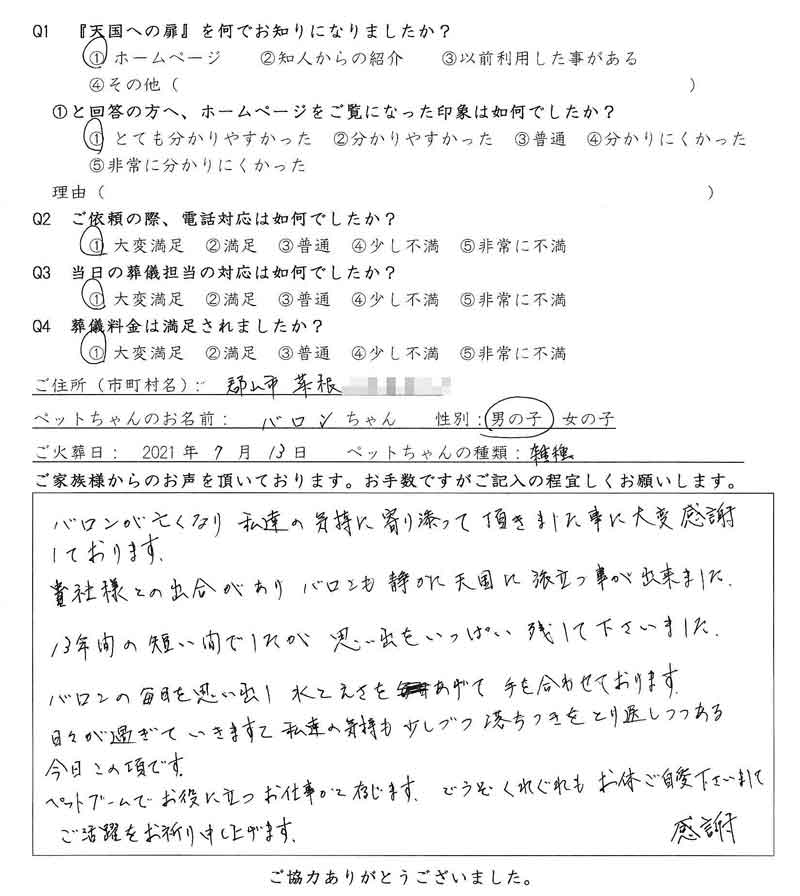 Q1 『天国への扉』を何でお知りになりましたか？
① ホームページ ②知人からの紹介 ③以前利用した事がある
④その他（ ）
①と回答の方へ、ホームページをご覧になった印象は如何でしたか？
① とても分かりやすかった ②分かりやすかった ③普通 ④分かりにくかった
⑤非常に分かりにくかった
理由（ ）
Q2 ご依頼の際、電話対応は如何でしたか？
① 大変満足 ②満足 ③普通 ④少し不満 ⑤非常に不満
Q3 当日の葬儀担当の対応は如何でしたか？
① 大変満足 ②満足 ③普通 ④少し不満 ⑤非常に不満
Q4 葬儀料金は満足されましたか？
① 大変満足 ②満足 ③普通 ④少し不満 ⑤非常に不満
ご住所（市町村名）： 郡山市 菜根
ペットちゃんのお名前： バロン ちゃん 性別：男の子 女の子
ご火葬日： 2021年 7月 13日 ペットちゃんの種類：雑種
ご家族様からのお声を頂いております。お手数ですがご記入の程宜しくお願いします。
バロンが亡くなり 私達の気持に寄り添って頂きました事に大変感謝
しております。
貴社様との出合があり バロンも静かに天国に旅立つ事が出来ました。
13年間の短い間でしたが 思い出をいっぱい残して下さいました。
バロンの毎日を思い出し 水とえさをあげて 手を合わせております。
日々が過ぎていきますと 私達の気持も少しづつ落ちつきをとり返しつつある
今日この頃です。
ペットブームでお役に立つお仕事かと存じます。どうぞくれぐれもお体ご自愛下さいまして
ご活躍をお祈り申し上げます。 感謝
ご協力ありがとうございました。